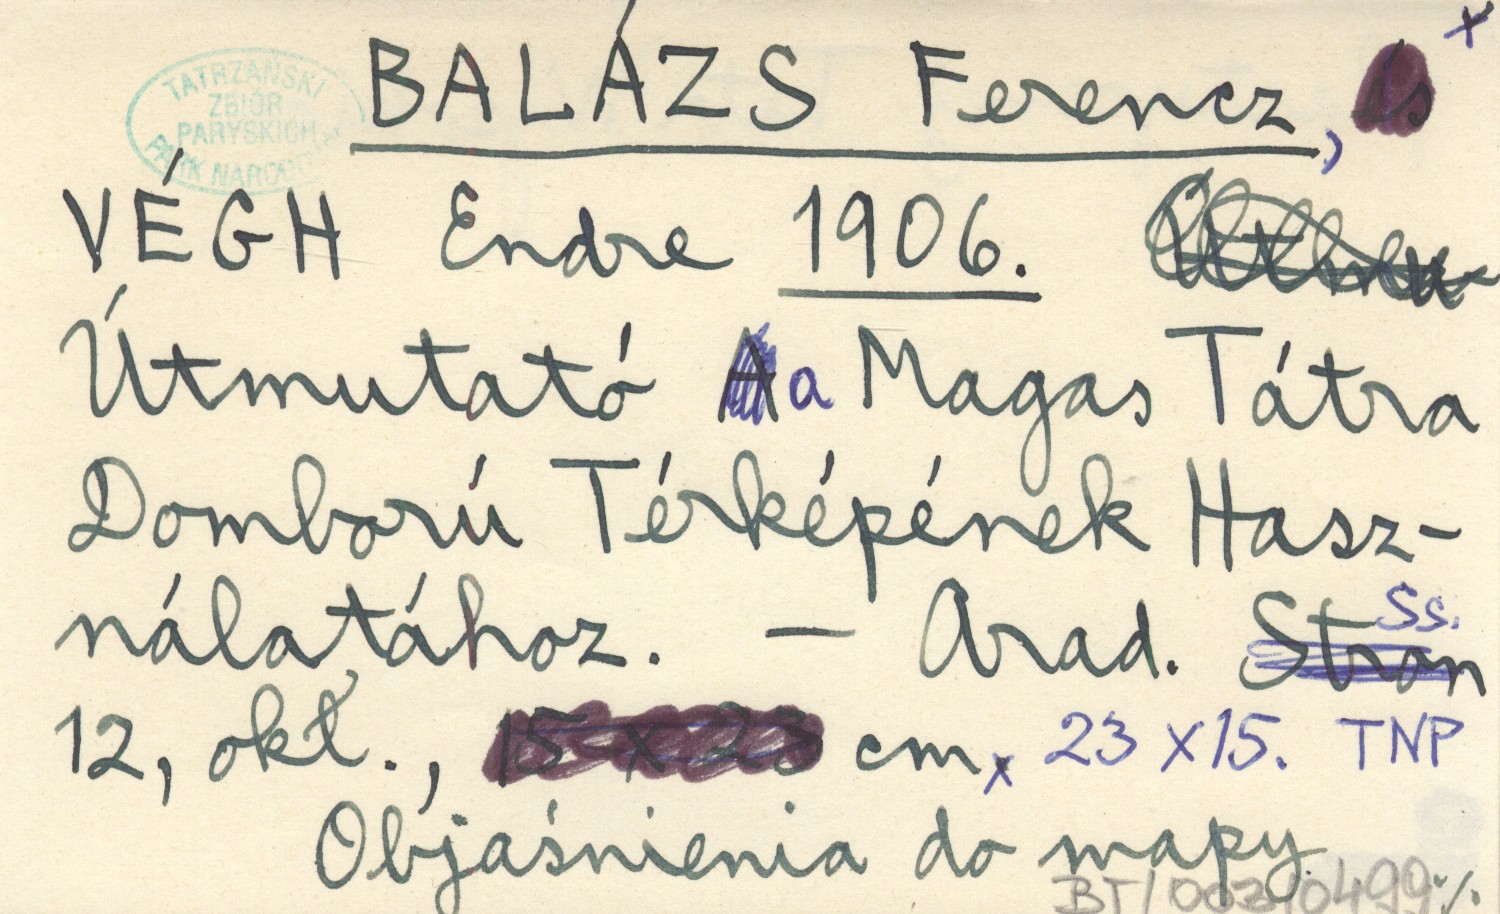 TATRZAŃSKI
ZBIÓR
PARYSKICH
PARK NARODO
BALÁZS Ferencz, és x
VÉGH Endre 1906.
Útmutató a Magas Tátra
Domború Térképének Hasz-
nálatához. — Arad. Stron Ss.
12, okł., 15 x 23 cm, x 23 x 15. TNP
Objaśnienia do mapy.
BT/003/0499 ./.